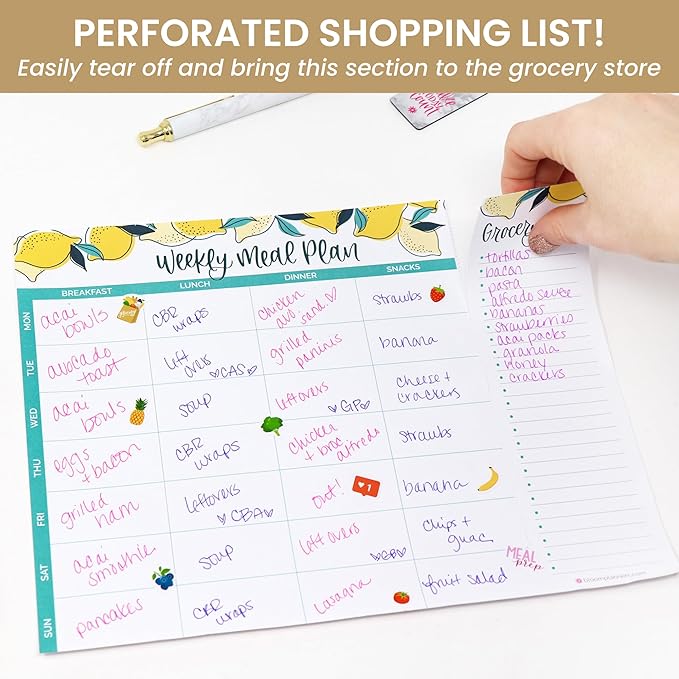 PERFORATED SHOPPING LIST!
Easily tear off and bring this section to the grocery store
Weekly Meal Plan
BREAKFAST LUNCH DINNER SNACKS
MON
acai
bowls
CBR
wraps
chicken
avo
sand.
strawbs
TUE
avocado
toast
left
overs
CAS
grilled
paninis
banana
WED
acai
bowls
soup
leftovers
GP
cheese +
crackers
THU
eggs
+ bacon
CBR
wraps
chicken
+ broc
alfredo
strawbs
FRI
grilled
ham
leftovers
CBA
out!
1
banana
SAT
acai
smoothie
soup
left overs
chips +
guac
SUN
pancakes
CBR
wraps
lasagna
fruit salad
Grocery
tortillas
bacon
pasta
alfredo sauce
bananas
strawberries
acai packs
granola
honey
crackers
MEAL
prep